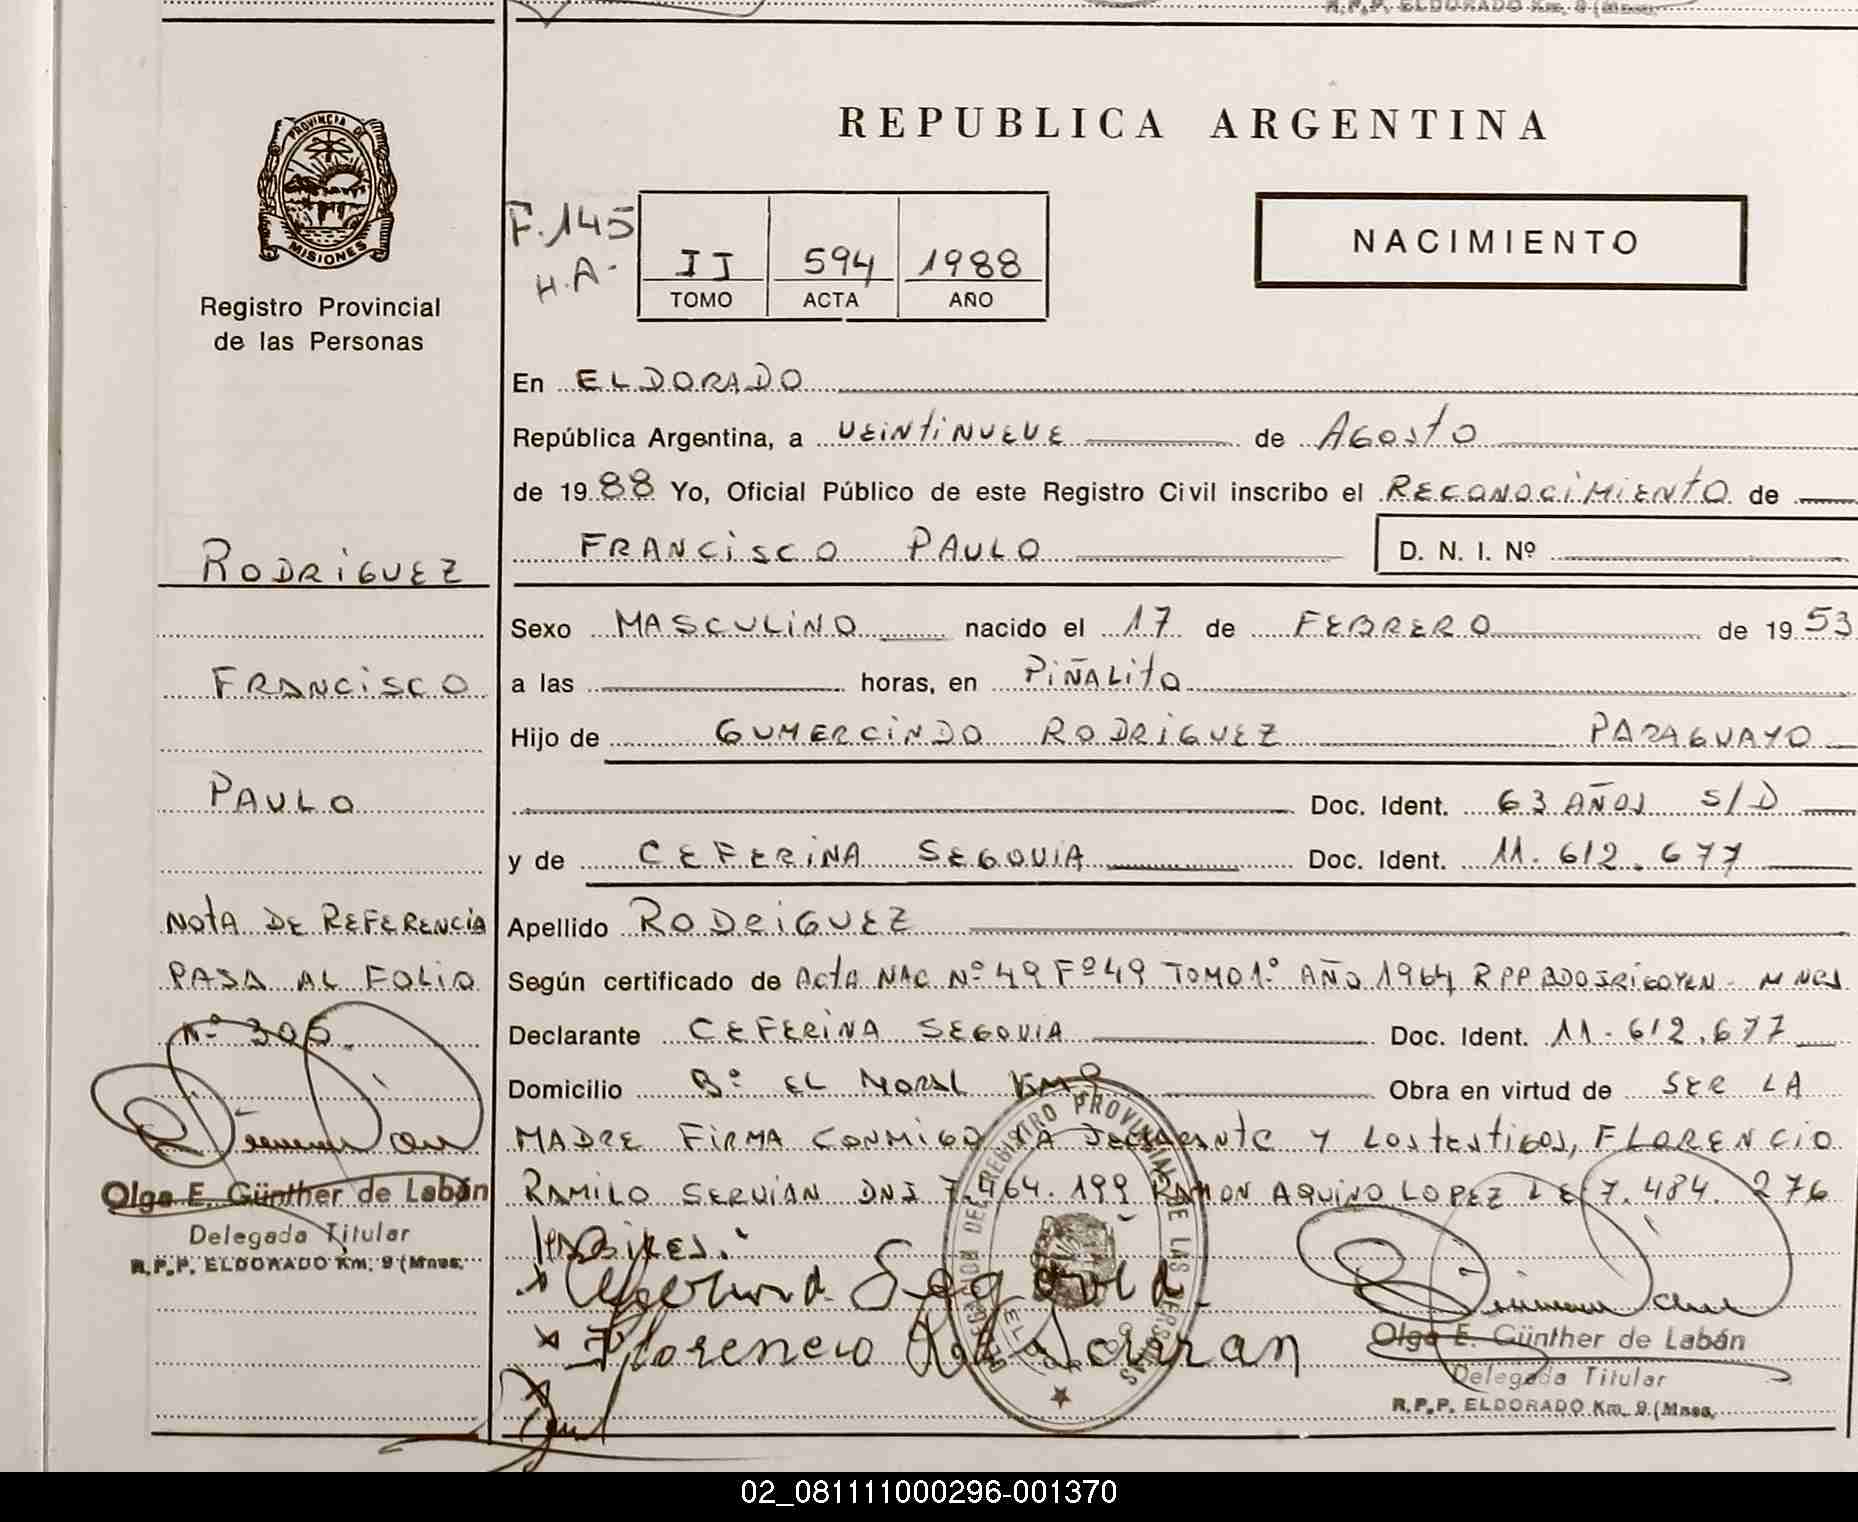 R.P.P. ELDORADO Km. 9 (Mnes.
PROVINCIA DE
MISIONES
Registro Provincial
de las Personas
RODRIGUEZ
FRANCISCO
PAULO
NOTA DE REFERENCIA
PASA AL FOLIO
Nº 305.
Olga E. Günther de Labán
Delegada Titular
R.P.P. ELDORADO Km. 9 (Mnes.
REPUBLICA ARGENTINA
F. 145
H.A.
II 594 1988
TOMO ACTA AÑO
NACIMIENTO
En ELDORADO
República Argentina, a VEINTINUEVE de AGOSTO
de 1988 Yo, Oficial Público de este Registro Civil inscribo el RECONOCIMIENTO de
FRANCISCO PAULO D. N. I. Nº
Sexo MASCULINO nacido el 17 de FEBRERO de 1953
a las horas, en PIÑALITO
Hijo de GUMERCINDO RODRIGUEZ PARAGUAYO
Doc. Ident. 63 AÑOS S/D
y de CEFERINA SEGOVIA Doc. Ident. 11.612.677
Apellido RODRIGUEZ
Según certificado de ACTA NAC Nº 49 Fº 49 TOMO 1º AÑO 1964 RPP BDO IRIGOYEN - MNES
Declarante CEFERINA SEGOVIA Doc. Ident. 11.612.677
Domicilio Bº EL MORAL KM 9 Obra en virtud de SER LA
MADRE FIRMA CONMIGO LA DECLARANTE Y LOS TESTIGOS, FLORENCIO
RAMILO SERVIAN DNI 7.464.199 RAMON AQUINO LOPEZ LE 7.484.276
Ceferina Segovia
Florencio Servian
DELEGACION DEL REGISTRO PROVINCIAL DE LAS PERSONAS
Olga E. Günther de Labán
Delegada Titular
R.P.P. ELDORADO Km. 9 (Mnes.
02_081111000296-001370